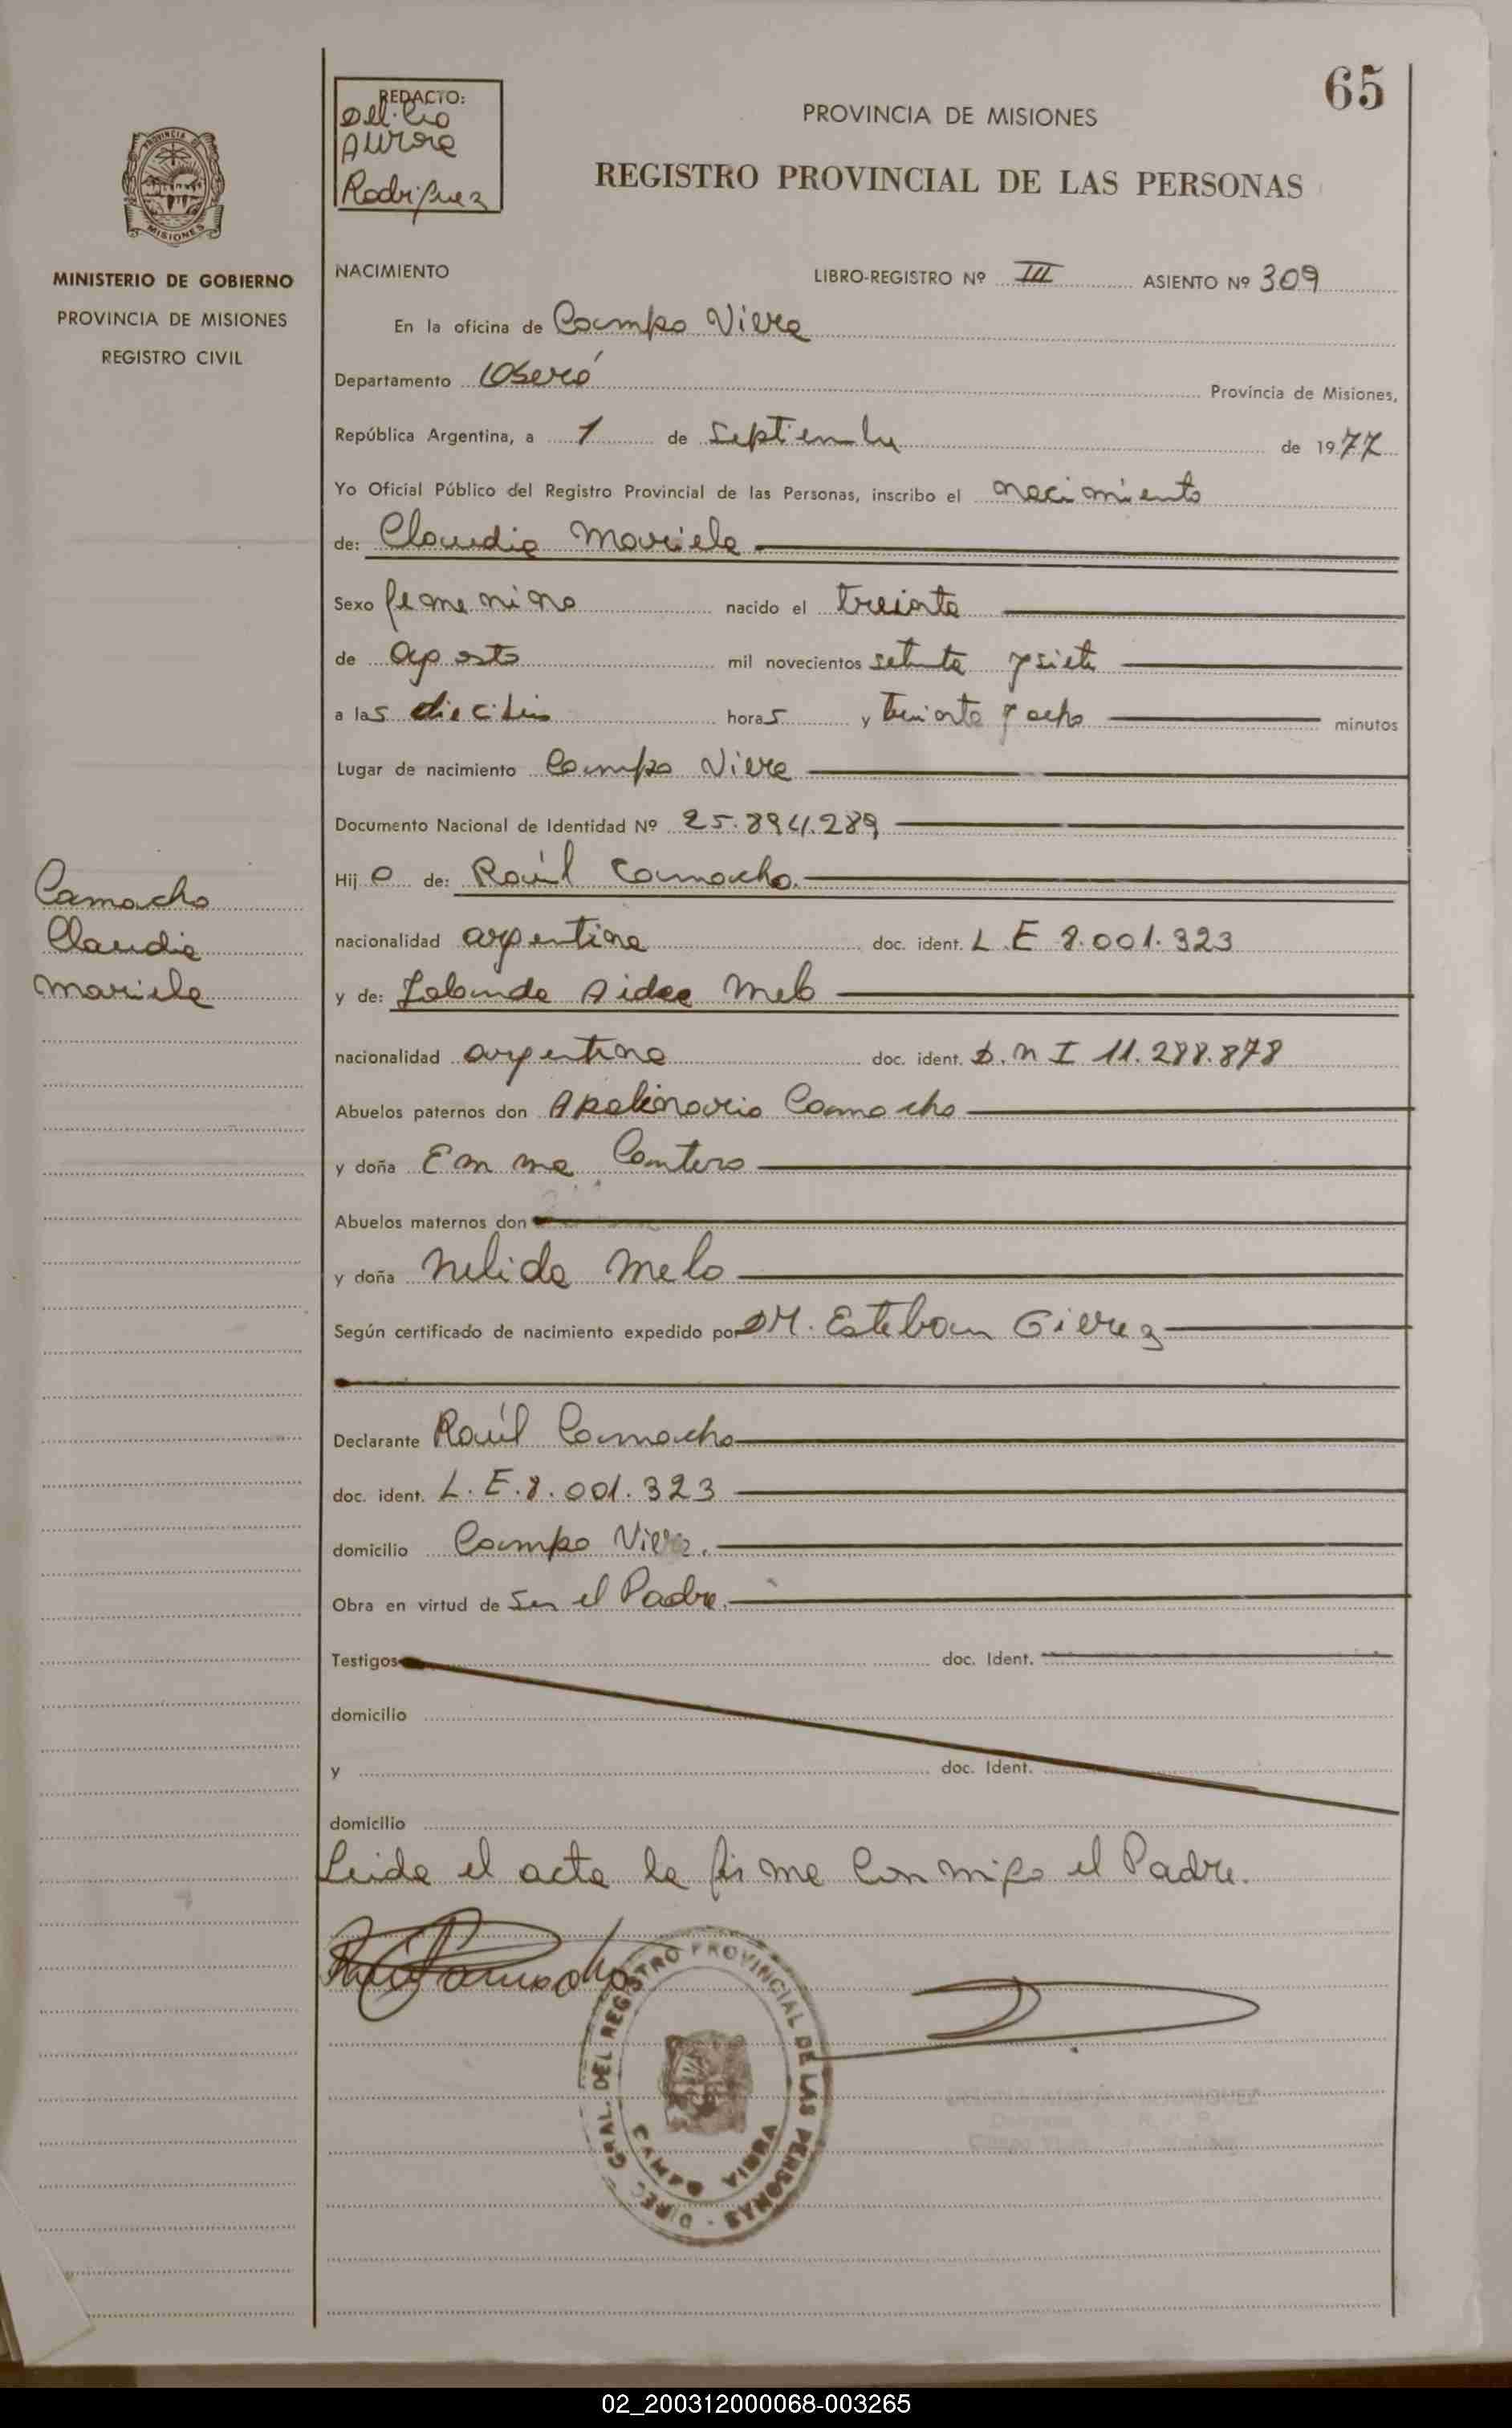 65
REDACTO:
Aurora
Rodriguez
PROVINCIA DE MISIONES
REGISTRO PROVINCIAL DE LAS PERSONAS
PROVINCIA DE
MISIONES
MINISTERIO DE GOBIERNO
PROVINCIA DE MISIONES
REGISTRO CIVIL
NACIMIENTO LIBRO-REGISTRO Nº III ASIENTO Nº 309
En la oficina de Campo Viera
Departamento Oberá Provincia de Misiones,
República Argentina, a 1 de Septiembre de 1977
Yo Oficial Público del Registro Provincial de las Personas, inscribo el nacimiento
de: Claudia Mariela
Sexo femenino nacido el treinta
de agosto mil novecientos setenta y siete
a las horas y treinta y ocho minutos
Lugar de nacimiento Campo Viera
Documento Nacional de Identidad Nº 25.894.289
Hija de: Raúl Camacho.
Camacho
Claudia
Mariela
nacionalidad argentina doc. ident. L.E 8.001.323
y de: Aidee Melo
nacionalidad argentina doc. ident. D.N I 11.288.878
Abuelos paternos don Apolinario Camacho
y doña Emma
Abuelos maternos don
y doña Nelida Melo
Según certificado de nacimiento expedido por DM. Esteban
Declarante Raúl Camacho
doc. ident. L.E.8.001.323
domicilio Campo Viera.
Obra en virtud de Ser el Padre.
Testigos doc. Ident.
domicilio
y doc. Ident.
domicilio
Leida el acta la firma Conmigo el Padre.
Raúl Camacho
DIREC. GRAL. DEL REGISTRO PROVINCIAL DE LAS PERSONAS
CAMPO VIERA
02_200312000068-003265